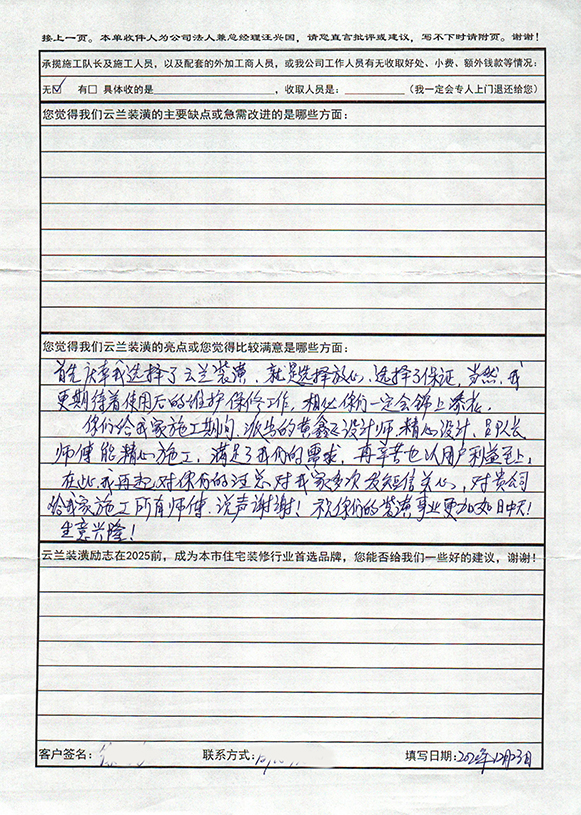 接上一页。本单收件人为公司法人兼总经理汪兴国，请您直言批评或建议，写不下时请附页。谢谢！
承揽施工队长及施工人员，以及配套的外加工商人员，或我公司工作人员有无收取好处、小费、额外钱款等情况：
无☑ 有□ 具体收的是： ，收取人员是： （我一定会专人上门退还给您）
您觉得我们云兰装潢的主要缺点或急需改进的是哪些方面：
您觉得我们云兰装潢的亮点或您觉得比较满意是哪些方面：
首先庆幸我选择了云兰装潢，就是选择放心、选择了保证，当然，我
更期待着使用后的维护保修工作，相信你们一定会锦上添花。
你们给我家施工期间，派出的黄鑫 设计师精心设计、 队长
师傅能精心施工，满足了我们的需求，再辛苦也以用户利益至上，
在此我再 对你们的汪总对我家多次发短信关心，对贵公司
给我家施工所有师傅，说声谢谢！祝你们的装潢事业更加如日中天！
生意兴隆！
云兰装潢励志在2025前，成为本市住宅装修行业首选品牌，您能否给我们一些好的建议，谢谢！
客户签名： 联系方式： 填写日期：2020年12月23日